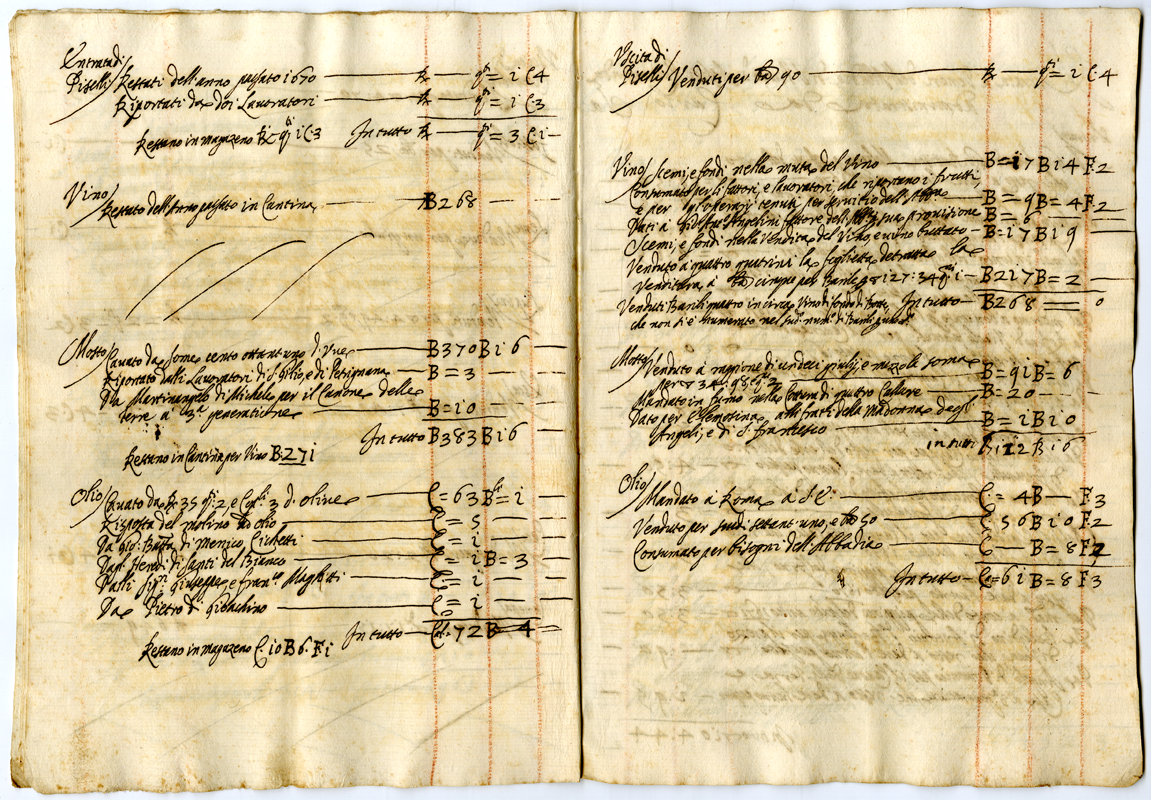 Entrata di
Piselli Restati dell'anno passato 1670 — R — qti = i C 4
Riportati da doi Lavoratori — R — qti = i C 3
Restano in magazeno R — q i C. 3 In tutto R — qti = 3 C i —
Vino
Restato dell'Anno passato in Cantina — B 268 —
Mosto Cavato da some cento ottant'uno d'Uve — B 370 B i 6 —
Riportato dalli Lavoratori di S. Gilio, e di Petrignana B = 3 —
Da Martinangelo di Michele per il Canone delle
terre a 3a generatione — B = i 0 —
In tutto B 383 B i 6 —
Restano in Cantina per Vino B. 27 i
Olio Cavato da R. 35 q. 2, e Cop. 3 d'olive — C = 63 B = i —
Risposta del molino ad olio — C = 5 —
Da Gio: Batta di Menico Cichetti — C = i —
Dagl'Heredi di Santi del Bianco — C = i B = 3 —
Dalli Sigri Giuseppe, e Franco — C = i —
Da Pietro di — C = i —
In tutto — C = 72 B — 4
Restano in magazeno C. i0 B 6. F i
Uscita di
Piselli Venduti per 90 — R — qti = i C. 4
Vino Scemi, e fondi nella muta del Vino — B = i 7 B i 4 F 2
Consumato per li fattori, e lavoratori, che riportano i frutti,
e per gl'operarij tenuti per servitio dell'Abba — B = 9 B = 4 F 2
Dati a Angelini fattore dell'Abba sua provisione B = 6 —
Scemi, e fondi nella Vendita del Vino, e vino buttato — B = i 7 B i 9 —
Venduto a quattro quatrini la foglietta detratta la
Venditura, a cinque per Barile — B 2 i 7 B = 2 —
Venduti Barili quattro in circa Vino di fondi di Botte, In tutto — B 268 — 0
che non si è numerato nel sud. num. di Barili
Mosto Venduto a ragione di undeci giulij, e mezzo la soma
per 34. 98 — B = 9 i B = 6
Mandato in fumo nella di quattro Caldare — B = 20 —
Dato per l'Elemosina alli frati della Madonna degl'
Angeli, e di S. Francesco — B = i B i 0
in tutto B i i 2 B i 6
Olio
Mandato a Roma a S. E. — C = 4 B — F 3
Venduto per scudi settant'uno, e 50 — C 5 6 B i 0 F 2
Consumato per bisogni dell'Abbadia — C — B = 8 F 2
In tutto — C = 6 i B = 8 F 3